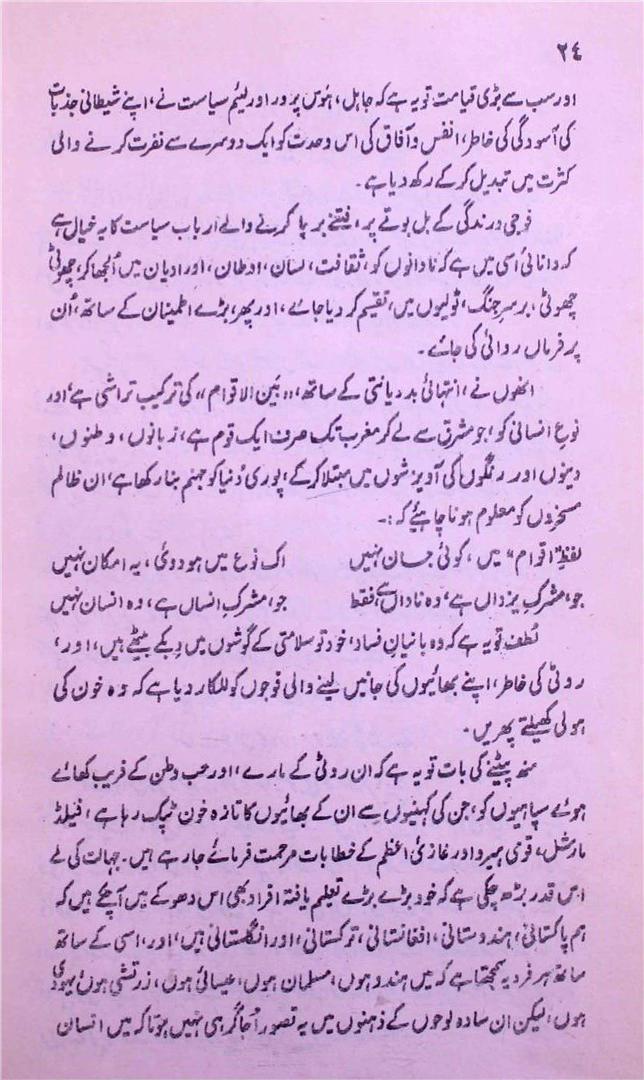 ۲۴
اور سب سے بڑی قیامت تو یہ ہے کہ جاہل، ہَوَس پرور اور لئیم سیاست نے، اپنے شیطانی جذبات
کی آسودگی کی خاطر، انفس و آفاق کی اس وحدت کو ایک دوسرے سے نفرت کرنے والی
کثرت میں تبدیل کر کے رکھ دیا ہے۔
فوجی درندگی کے بل بوتے پر، فتنے برپا کرنے والے ارباب سیاست کا یہ خیال ہے
کہ دانائی اُسی میں ہے کہ نادانوں کو، ثقافت، لسان، اوطان، اور ادیان میں اُلجھا کر، چھوٹی
چھوٹی، برسرِ جنگ، ٹولیوں میں، تقسیم کر دیا جائے، اور پھر، بڑے اطمینان کے ساتھ، اُن
پر فرماں روائی کی جائے۔
انھوں نے، انتہائی بد دیانتی کے ساتھ، "بَین الاقوام" کی ترکیب تراشی ہے، اور
نوعِ انسانی کو، جو مشرق سے لے کر مغرب تک صرف ایک قوم ہے، زبانوں، وطنوں،
دینوں اور رنگوں کی آویزشوں میں مبتلا کر کے، پوری دُنیا کو جہنم بنا رکھا ہے، ان ظالم
مسخروں کو معلوم ہونا چاہیئے کہ :۔
لفظِ "اقوام" میں، کوئی جان نہیں اک نوع میں ہو دوئی، یہ امکان نہیں
جو، مشرکِ یزداں ہے، وہ ناداں ہے، فقط جو، مشرکِ انساں ہے، وہ انسان نہیں
لُطف تو یہ ہے کہ وہ بانیانِ فساد، خود تو سلامتی کے گوشوں میں دبکے بیٹھے ہیں، اور،
روٹی کی خاطر، اپنے بھائیوں کی جانیں لینے والی فوجوں کو للکار دیا ہے کہ وہ خون کی
ہولی کھیلتے پھریں۔
منہ پیٹنے کی بات تو یہ ہے کہ ان روٹی کے مارے، اور حب وطن کے فریب کھائے
ہوئے سپاہیوں کو، جن کی کہنیوں سے ان کے بھائیوں کا تازہ خون ٹپک رہا ہے، فیلڈ
مارشل، قومی ہیرو اور غازیٔ اعظم کے خطابات مرحمت فرمائے جا رہے ہیں۔ جہالت کی لے
اس قدر بڑھ چکی ہے کہ خود بڑے بڑے تعلیم یافتہ افراد بھی اس دھوکے میں آ چکے ہیں کہ
ہم پاکستانی، ہندوستانی، افغانستانی، ترکستانی، اور انگلستانی ہیں، اور، اسی کے ساتھ
ساتھ ہر فرد یہ سمجھتا ہے کہ میں ہندو ہوں، مسلمان ہوں، عیسائی ہوں، زرتشی ہوں، یہودی
ہوں، لیکن ان سادہ لوحوں کے ذہنوں میں یہ تصور اُجاگر ہی نہیں ہوتا کہ میں انسان